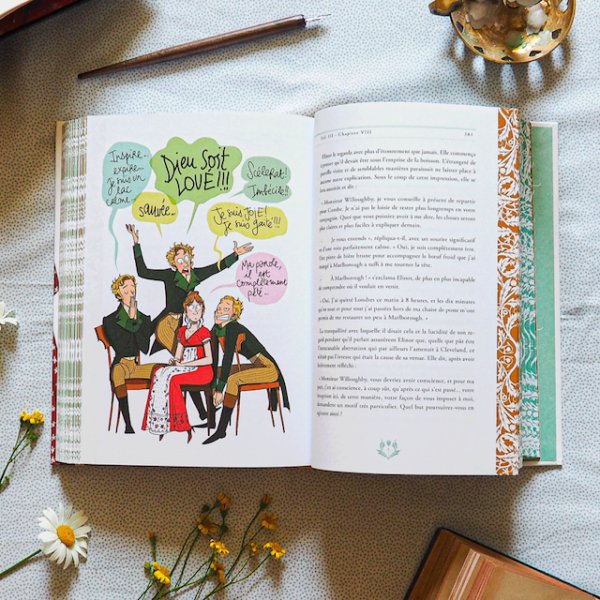 Inspire...
expire...
Je suis un
lac
calme...
Dieu soit
LOUÉ!!!
Scélérat!
Imbécile!!
sauvée...
Je suis JOIE!
Je suis gaité!!!
Ma parole,
il est
complètement
pété...
Vol III - Chapitre VIII
381
Elinor le regarda avec plus d'étonnement que jamais. Elle commença
à penser qu'il devait être sous l'emprise de la boisson. L'étrangeté de
pareille visite et de semblables manières paraissait ne laisser place à
aucune autre explication. Sous le coup de cette impression, elle se
leva aussitôt et dit :
« Monsieur Willoughby, je vous conseille à présent de repartir
pour Combe. Je n'ai pas le loisir de rester plus longtemps en votre
compagnie. Quoi que vous puissiez avoir à me dire, les choses seront
plus claires et plus faciles à expliquer demain.
— Je vous entends », répliqua-t-il, avec un sourire significatif
et d'une voix parfaitement calme. « Oui, je suis complètement ivre.
Une pinte de bière brune pour accompagner le bœuf froid que j'ai
mangé à Marlborough a suffi à me tourner la tête.
— À Marlborough ! » s'exclama Elinor, de plus en plus incapable
de comprendre où il voulait en venir.
« Oui. J'ai quitté Londres ce matin à 8 heures, et les dix minutes
qu'en tout et pour tout j'ai passées hors de ma chaise de poste m'ont
permis de me restaurer un peu à Marlborough. »
La tranquillité avec laquelle il disait cela et la lucidité de son re-
gard pendant qu'il parlait assurèrent Elinor que, quelle que pût être
l'inexcusable aberration qui par ailleurs l'amenait à Cleveland, ce
n'était pas l'ivresse qui était la cause de sa venue. Elle dit, après avoir
réfléchi :
« Monsieur Willoughby, vous devriez avoir conscience, et pour ma
part, j'en ai conscience, à coup sûr, qu'après ce qui s'est passé... votre
irruption ici, de cette manière, votre façon de vous imposer à moi,
demandent un motif très particulier. Quel but poursuivez-vous en
agissant ainsi ?